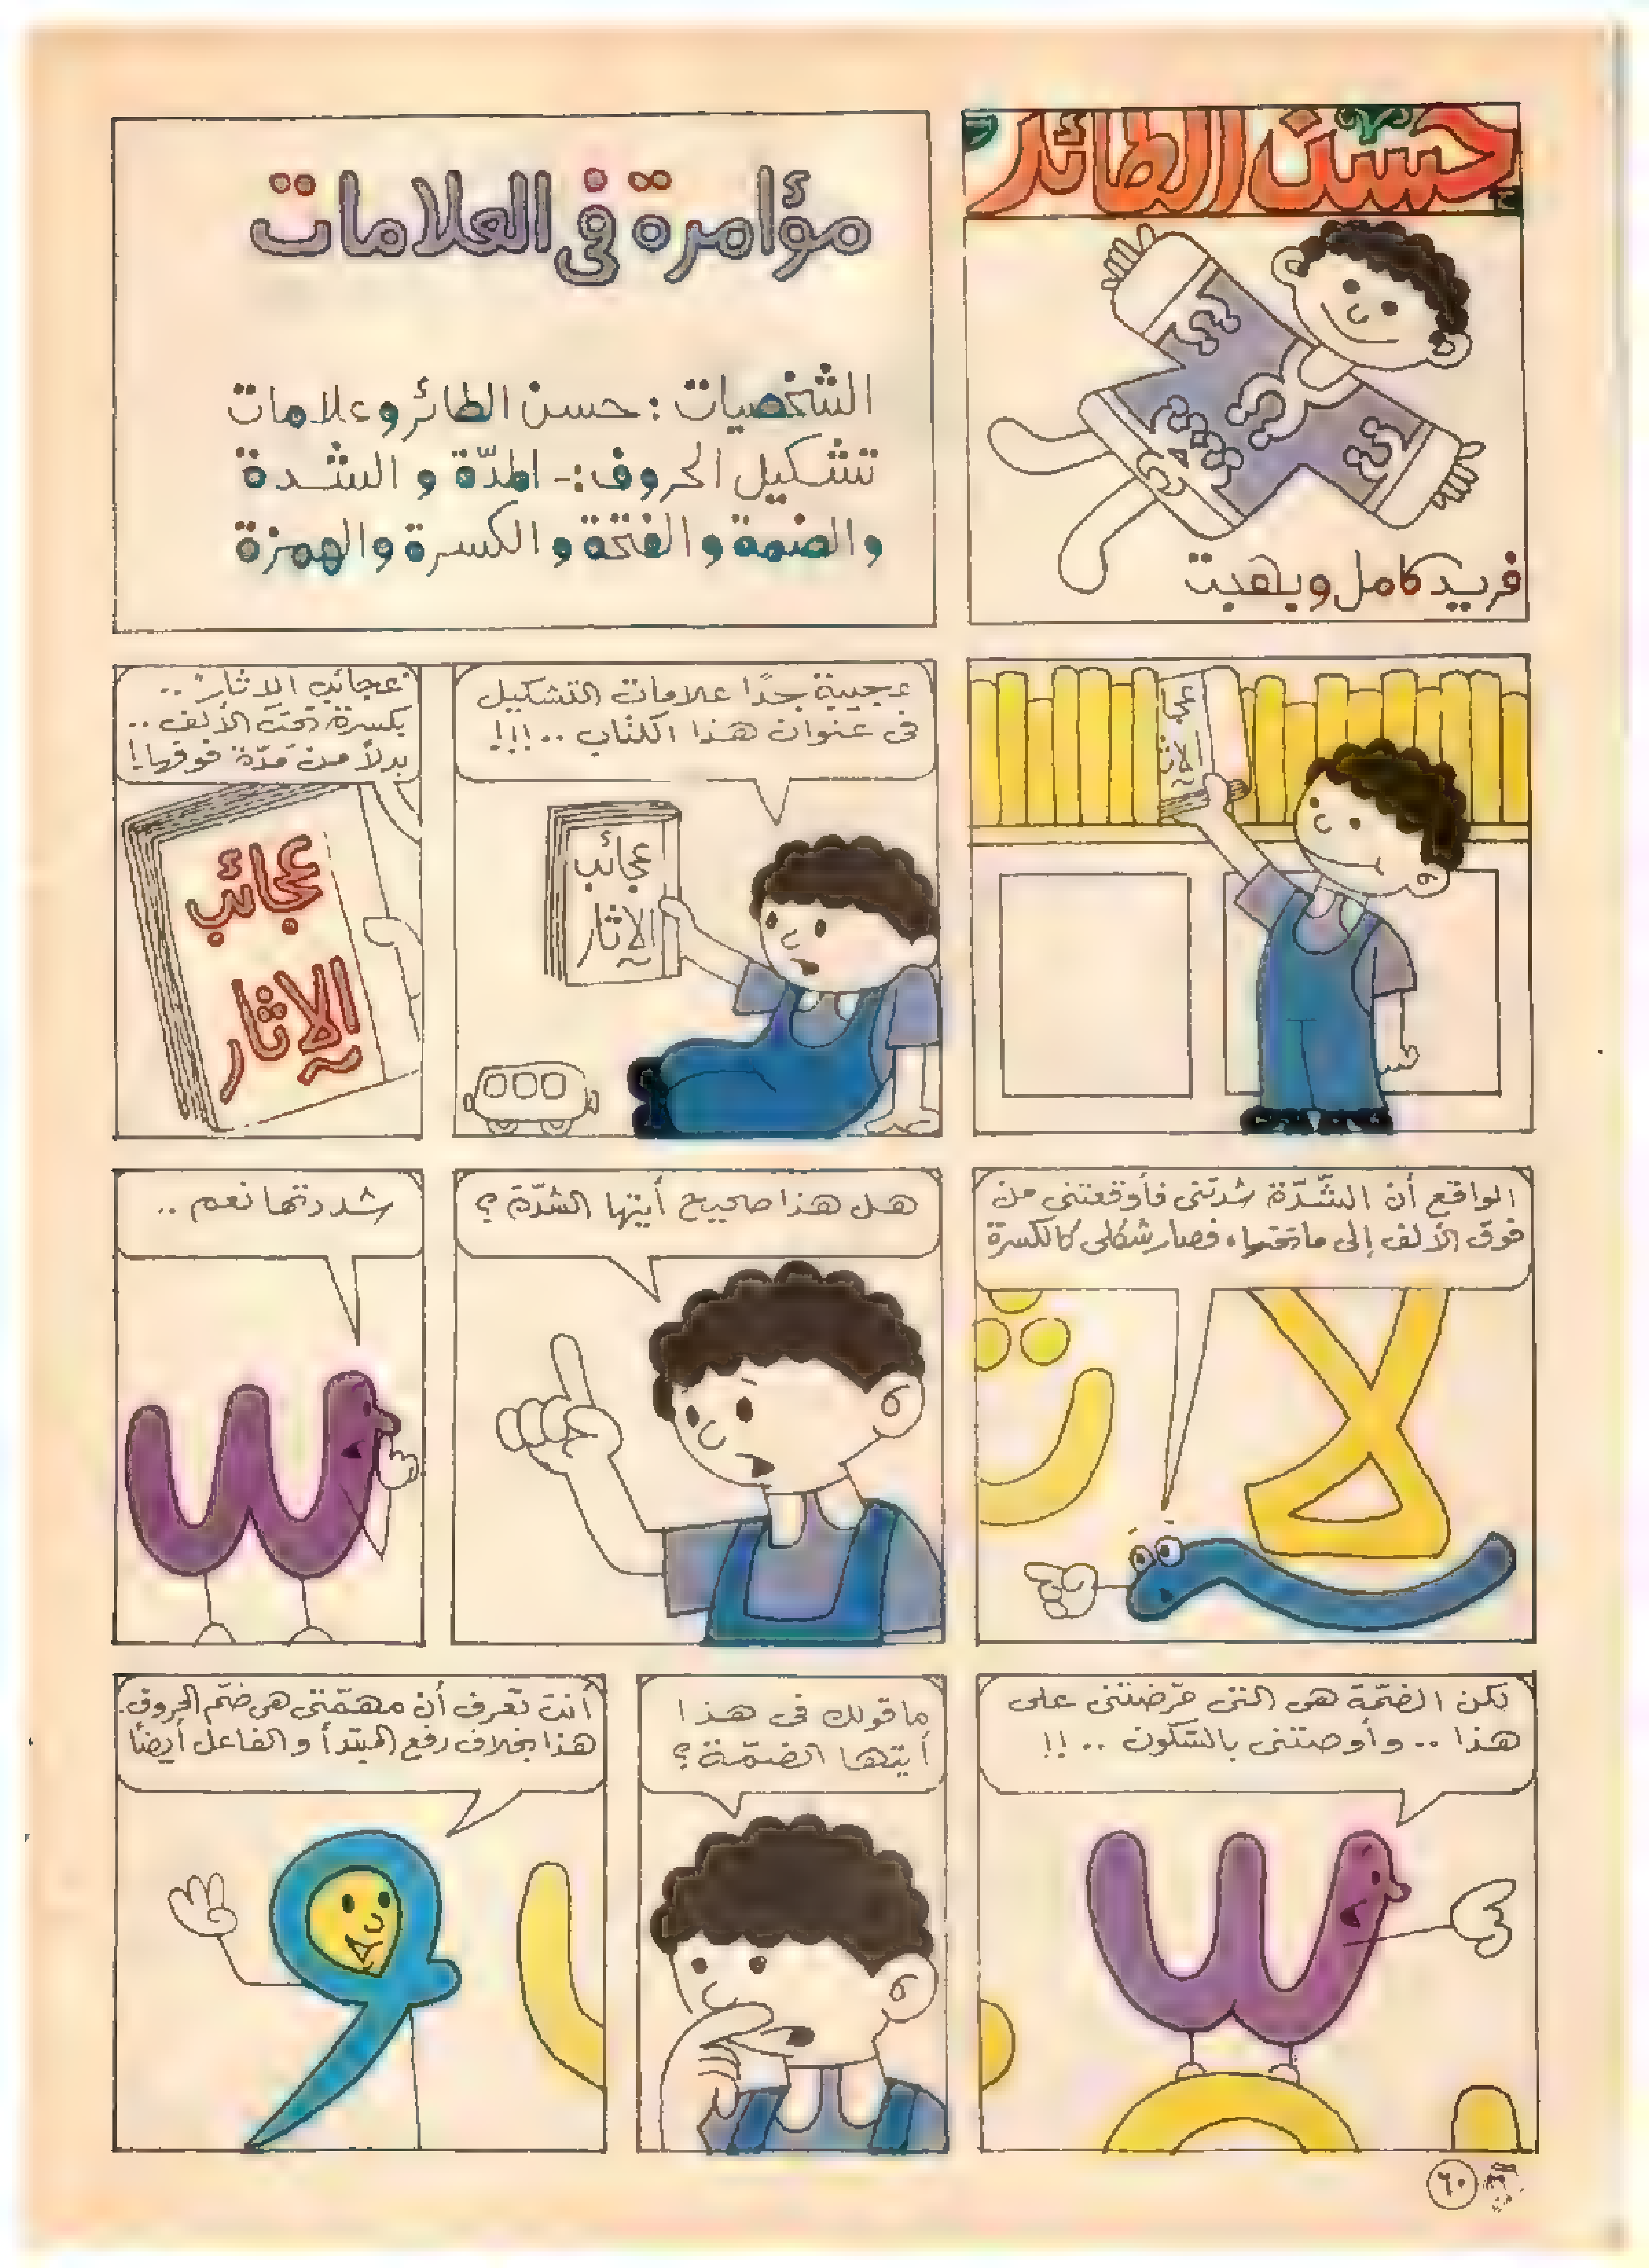 حسن الطائر
فريد كامل وبهجت
مؤامرة فى العلامات
الشخصيات : حسن الطائر وعلامات
تشكيل الحروف :- المدّة و الشدة
والضمة والفتحة والكسرة والهمزة
عجائب
الآثار
عجيبة جدًا علامات التشكيل
فى عنوان هذا الكتاب ..!!!
عجائب
الاثار
"عجائب الاثار" ..
بكسرة تحت الألف ..
بدلاً من مَدّة فوقها!
عجائب
الاثار
الواقع أن الشّدّة شدتنى فأوقعتنى من
فوق الألف إلى ماتحتها، فصار شكلى كالكسرة
لا
هل هذا صحيح أيتها الشدّة ؟
شددتها نعم ..
لكن الضمّة هى التى حرّضتنى على
هذا .. وأوصتنى بالسّكون .. !!
ماقولك فى هذا
أيتها الضمّة ؟
أنت تعرف أن مهمّتى هى ضمّ الحروف.
هذا بخلاف رفع المبتدأ والفاعل أيضاً
٦٠